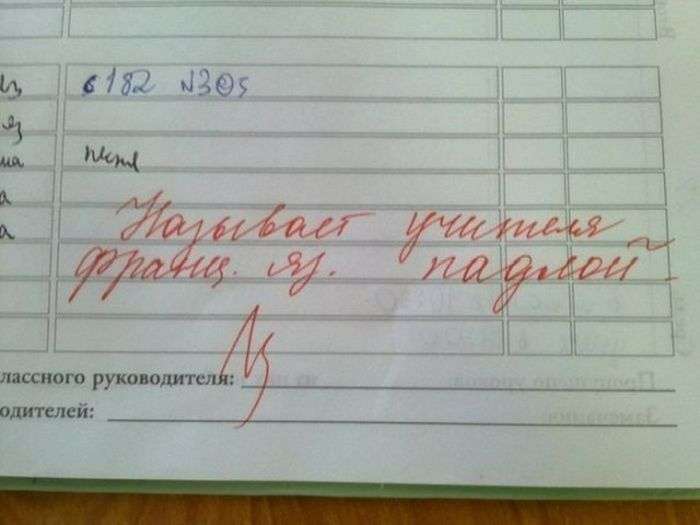 с 182 N305
яз
ма
а
Называет учителя
а
франц. яз. падлой
лассного руководителя:
одителей: